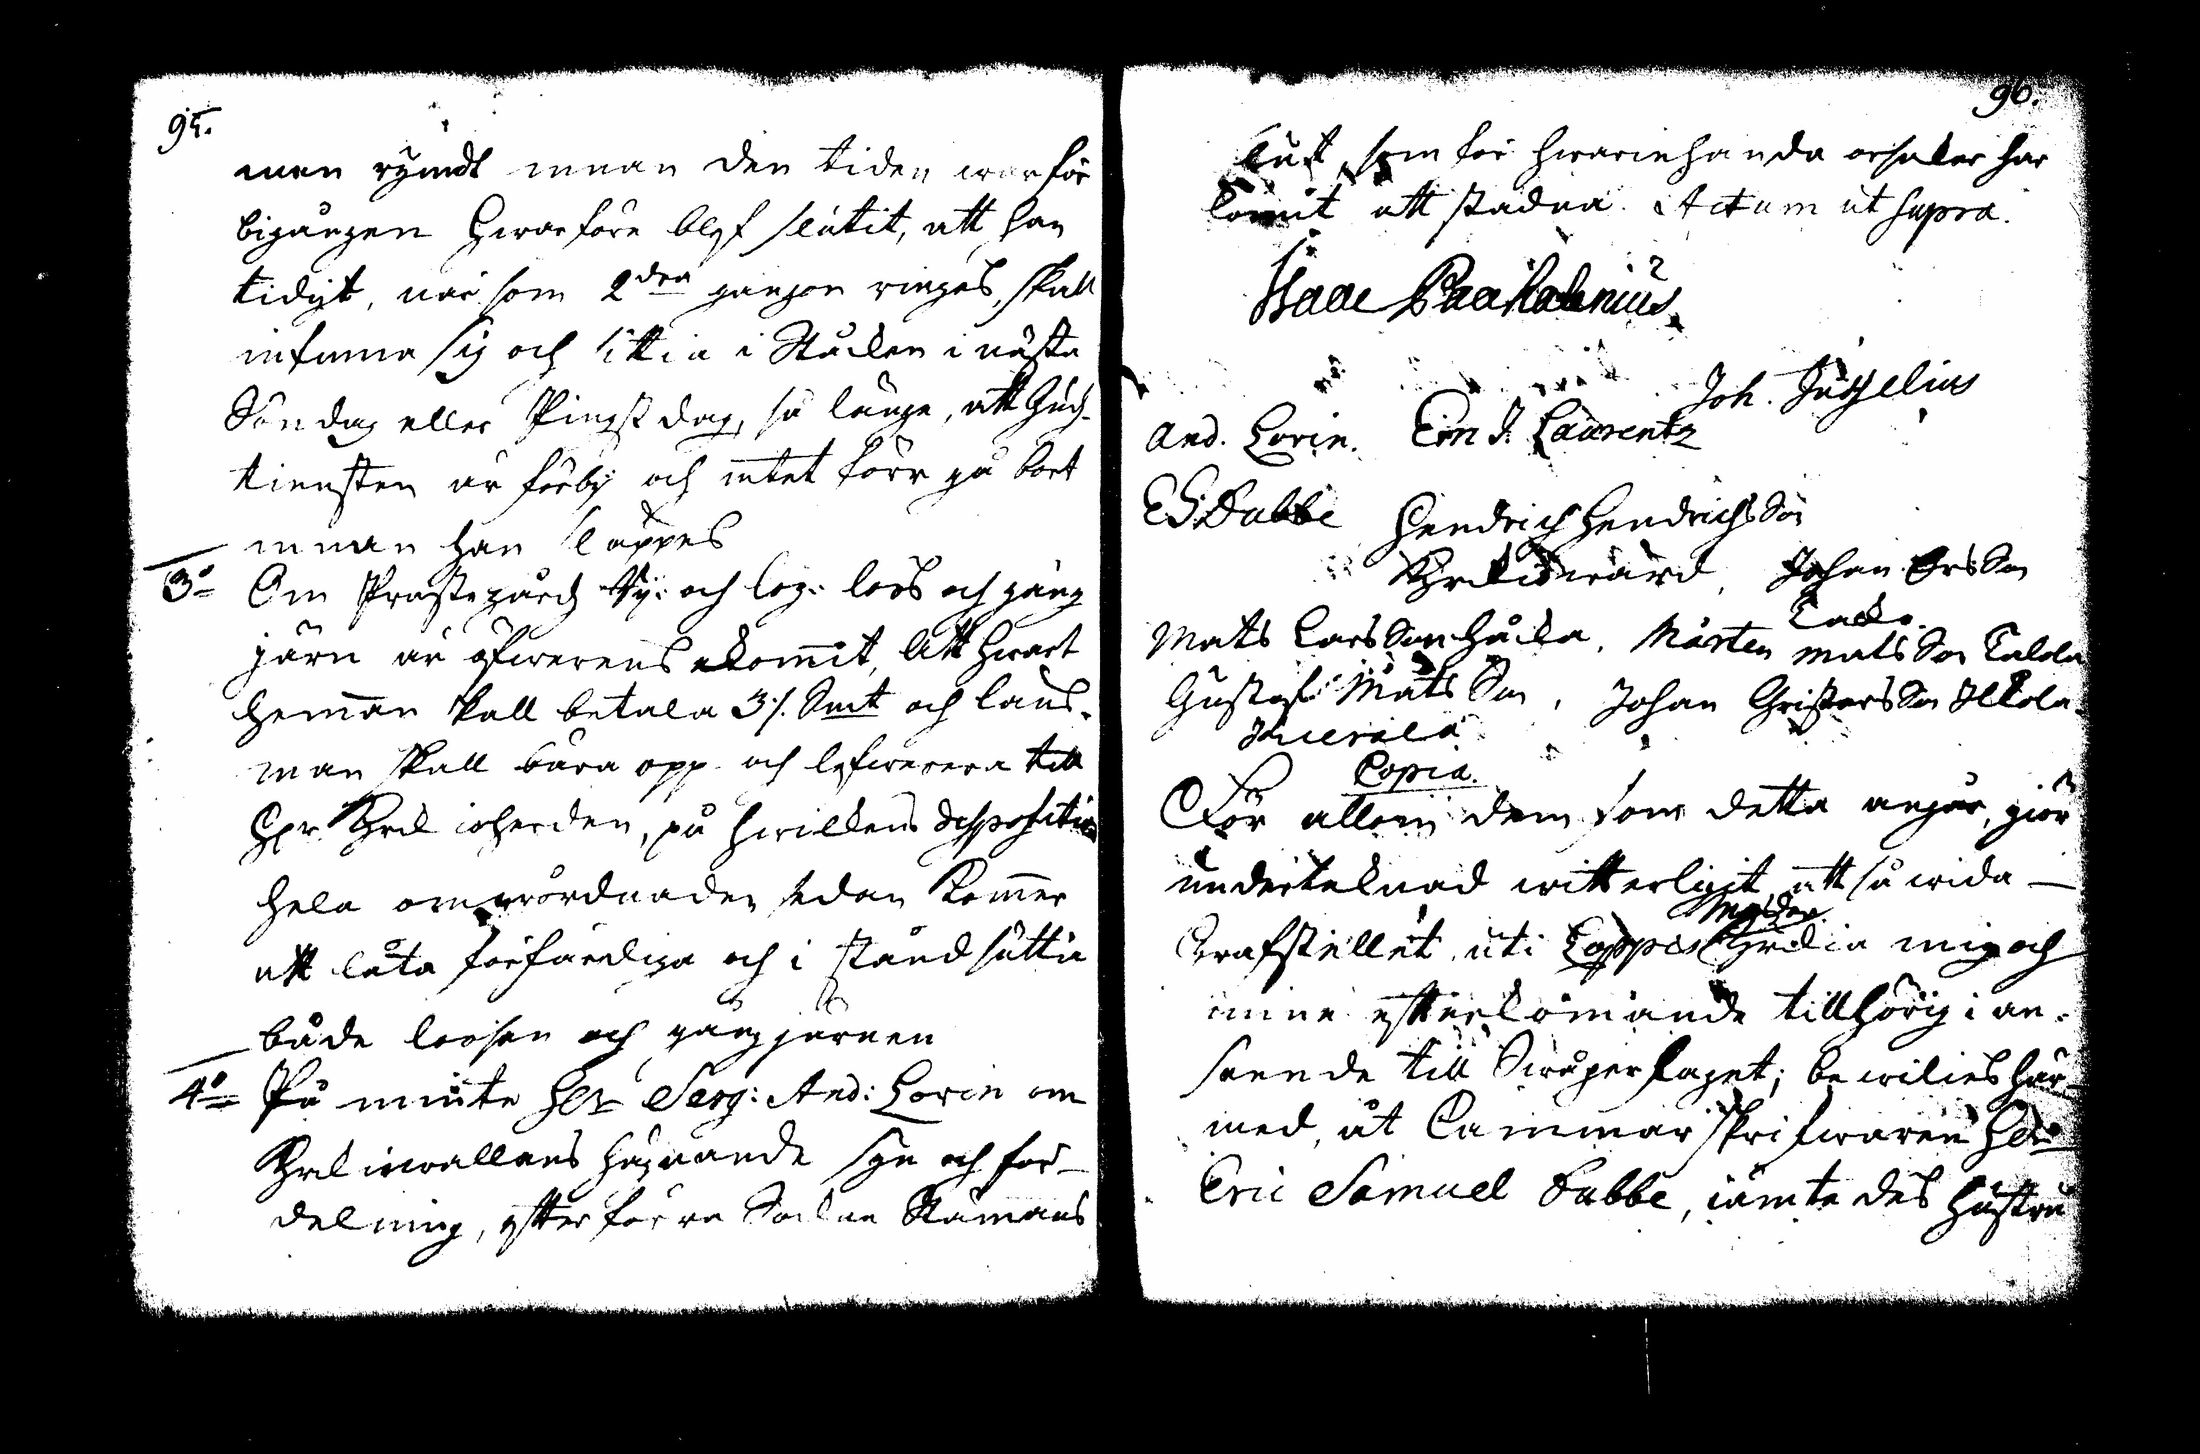 95.
men rymdt innan den tiden war för
bigången hwarföre blef slutit, att han
tidigt, när som 2dra gangon ringes, skall
infinna sig och sittia i Stocken i nästa
Söndag eller Pingst dag, så länge, att Gudz-
tiensten är förbÿ och intet förr gå bort
innan han släppes
3o Om Prästegårdz Ny: och log: lås och gång
järn är öfwerens ekommit, att hwart
hemman skall betala 3 /. Smt och läns-
man skall bära opp och lefwerera till
Hr Kyrckioherden, på hwilckens disposition
hela omwårdnaden sedan kommer
att låta förfärdiga och i stånd sättia
både låsen och gångjärnen
4o På minte Hr Serg: And: Lorin om
Kyrckiowallens hägnande syn och för-
delning, efter förra Sockne Stämans
96.
slut, som för hwariehanda orsaker har
kommit att stadna. Actum ut supra.
Isaac Pachalenius
Joh. Jusselius
And. Lorin. Eric J. Laurentz
E S: Dubbe Hendrich Hendrichs Son
Kyrckiowärd, Johan Ers Son
Mats Lars Son Håcka, Mårten Mats Son Talola
Gustaf Mats Son, Johan Christers Son Illola
Copia.
För allom dem som detta angår, giör
undertecknad witterligit att så wida
Grafstellet uti Loppis Kyrckia mig och
mine efterkommande tillhörig i an-
seende till Swågerskapet; bewilies här
med, åt Cammarskrifwaren Hr
Eric Samuel Dubbe, jämte des hustru